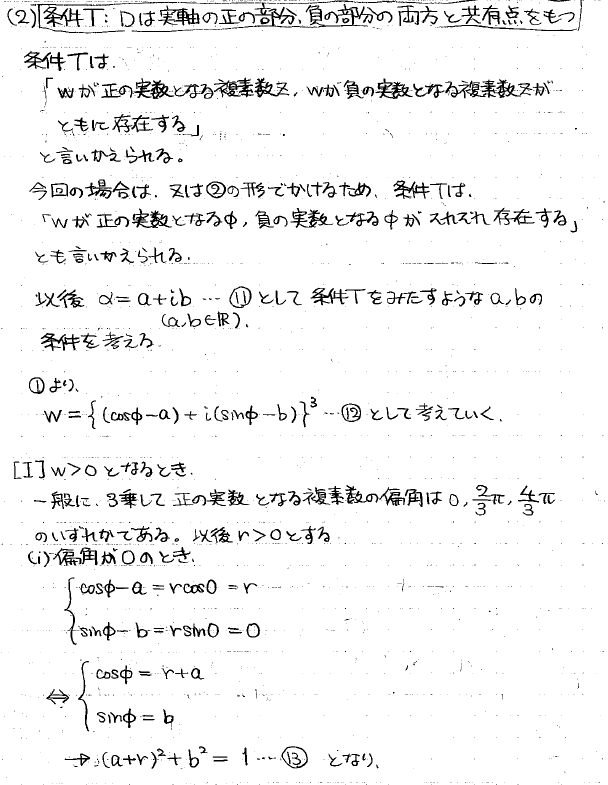 (2) 条件T: Dは実軸の正の部分、負の部分の両方と共有点をもつ
条件Tは、
「wが正の実数となる複素数z, wが負の実数となる複素数zが
ともに存在する」
と言いかえられる。
今回の場合は、zは②の形でかけるため、条件Tは、
「wが正の実数となるφ, 負の実数となるφがそれぞれ存在する」
とも言いかえられる.
以後 α=a+ib … ⑪として 条件Tをみたすようなa,bの
(a,b∈ℝ).
条件を考える.
①より、
w={(cosφ-a)+i(sinφ-b)}³ … ⑫として考えていく.
[I] w>0となるとき.
一般に、3乗して正の実数となる複素数の偏角は 0, 2/3π, 4/3π
のいずれかである。以後r>0とする
(i)偏角が0のとき.
{cosφ-a=rcos0=r
sinφ-b=rsin0=0
⇔ {cosφ=r+a
sinφ=b
→ (a+r)²+b²=1 … ⑬ となり、